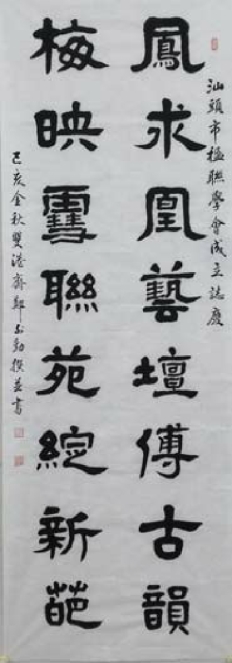 汕頭市楹聯學會成立誌慶
鳳求凰藝壇傳古韻
梅映雪聯苑綻新葩
己亥金秋雙港齋鄭勤撰並書